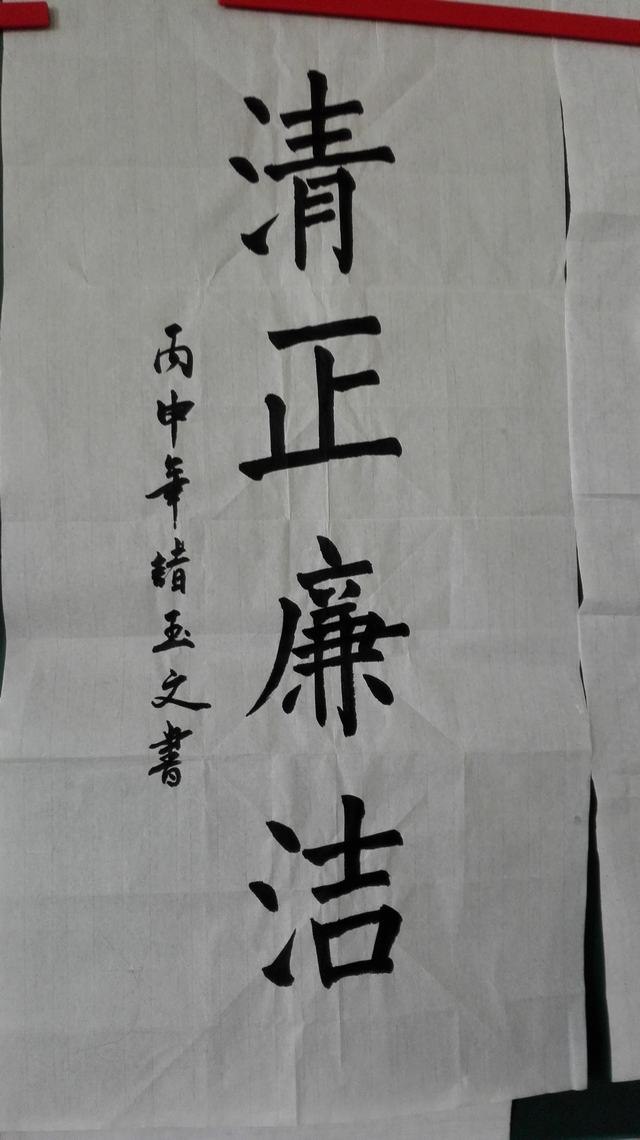 清正廉洁
丙申年靖玉文書